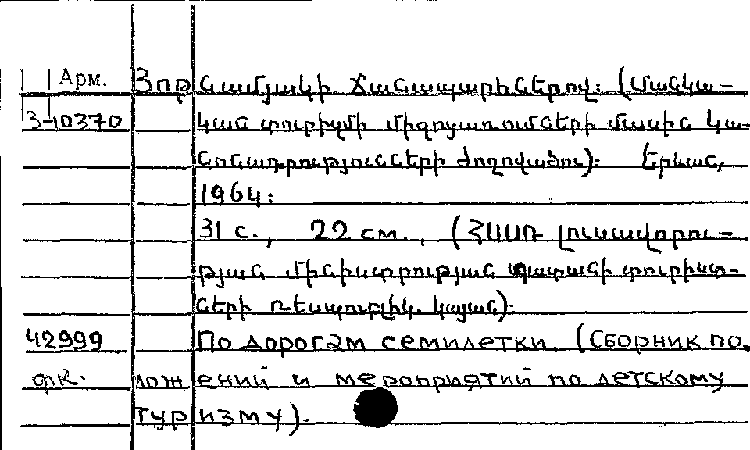 Арм. Յոթնամյակի ճանապարհներով: (Մանկա-
3-10370 կան տուրիզմի միջոցառումների մասին կա-
նոնադրությունների ժողովածու): Երևան,
1964:
31 с., 22 см., (ՀՍՍՌ լուսավորու-
թյան մինիստրության պատանի տուրիստ-
ների ռեսպուբլիկ. կայան):
42999 По дорогам семилетки (Сборник по-
фк. ложений и мероприятий по детскому
туризму).